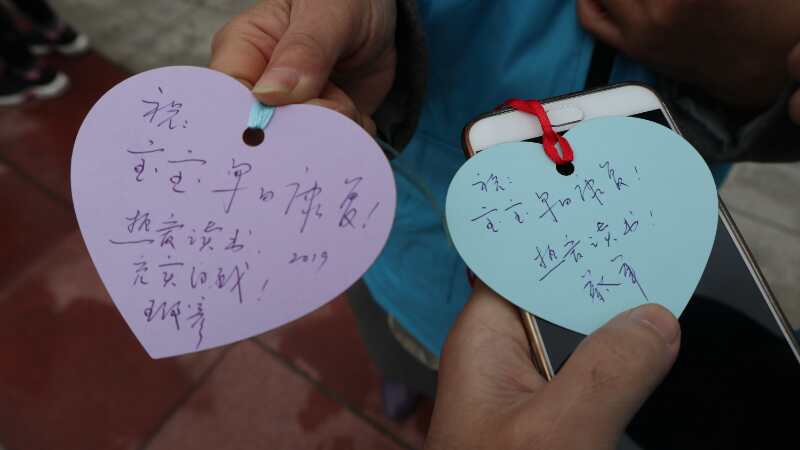 祝:
宝宝 早日康复!
热爱读书.
充实自我! 2019
祝:
宝宝早日康复!
热爱读书!